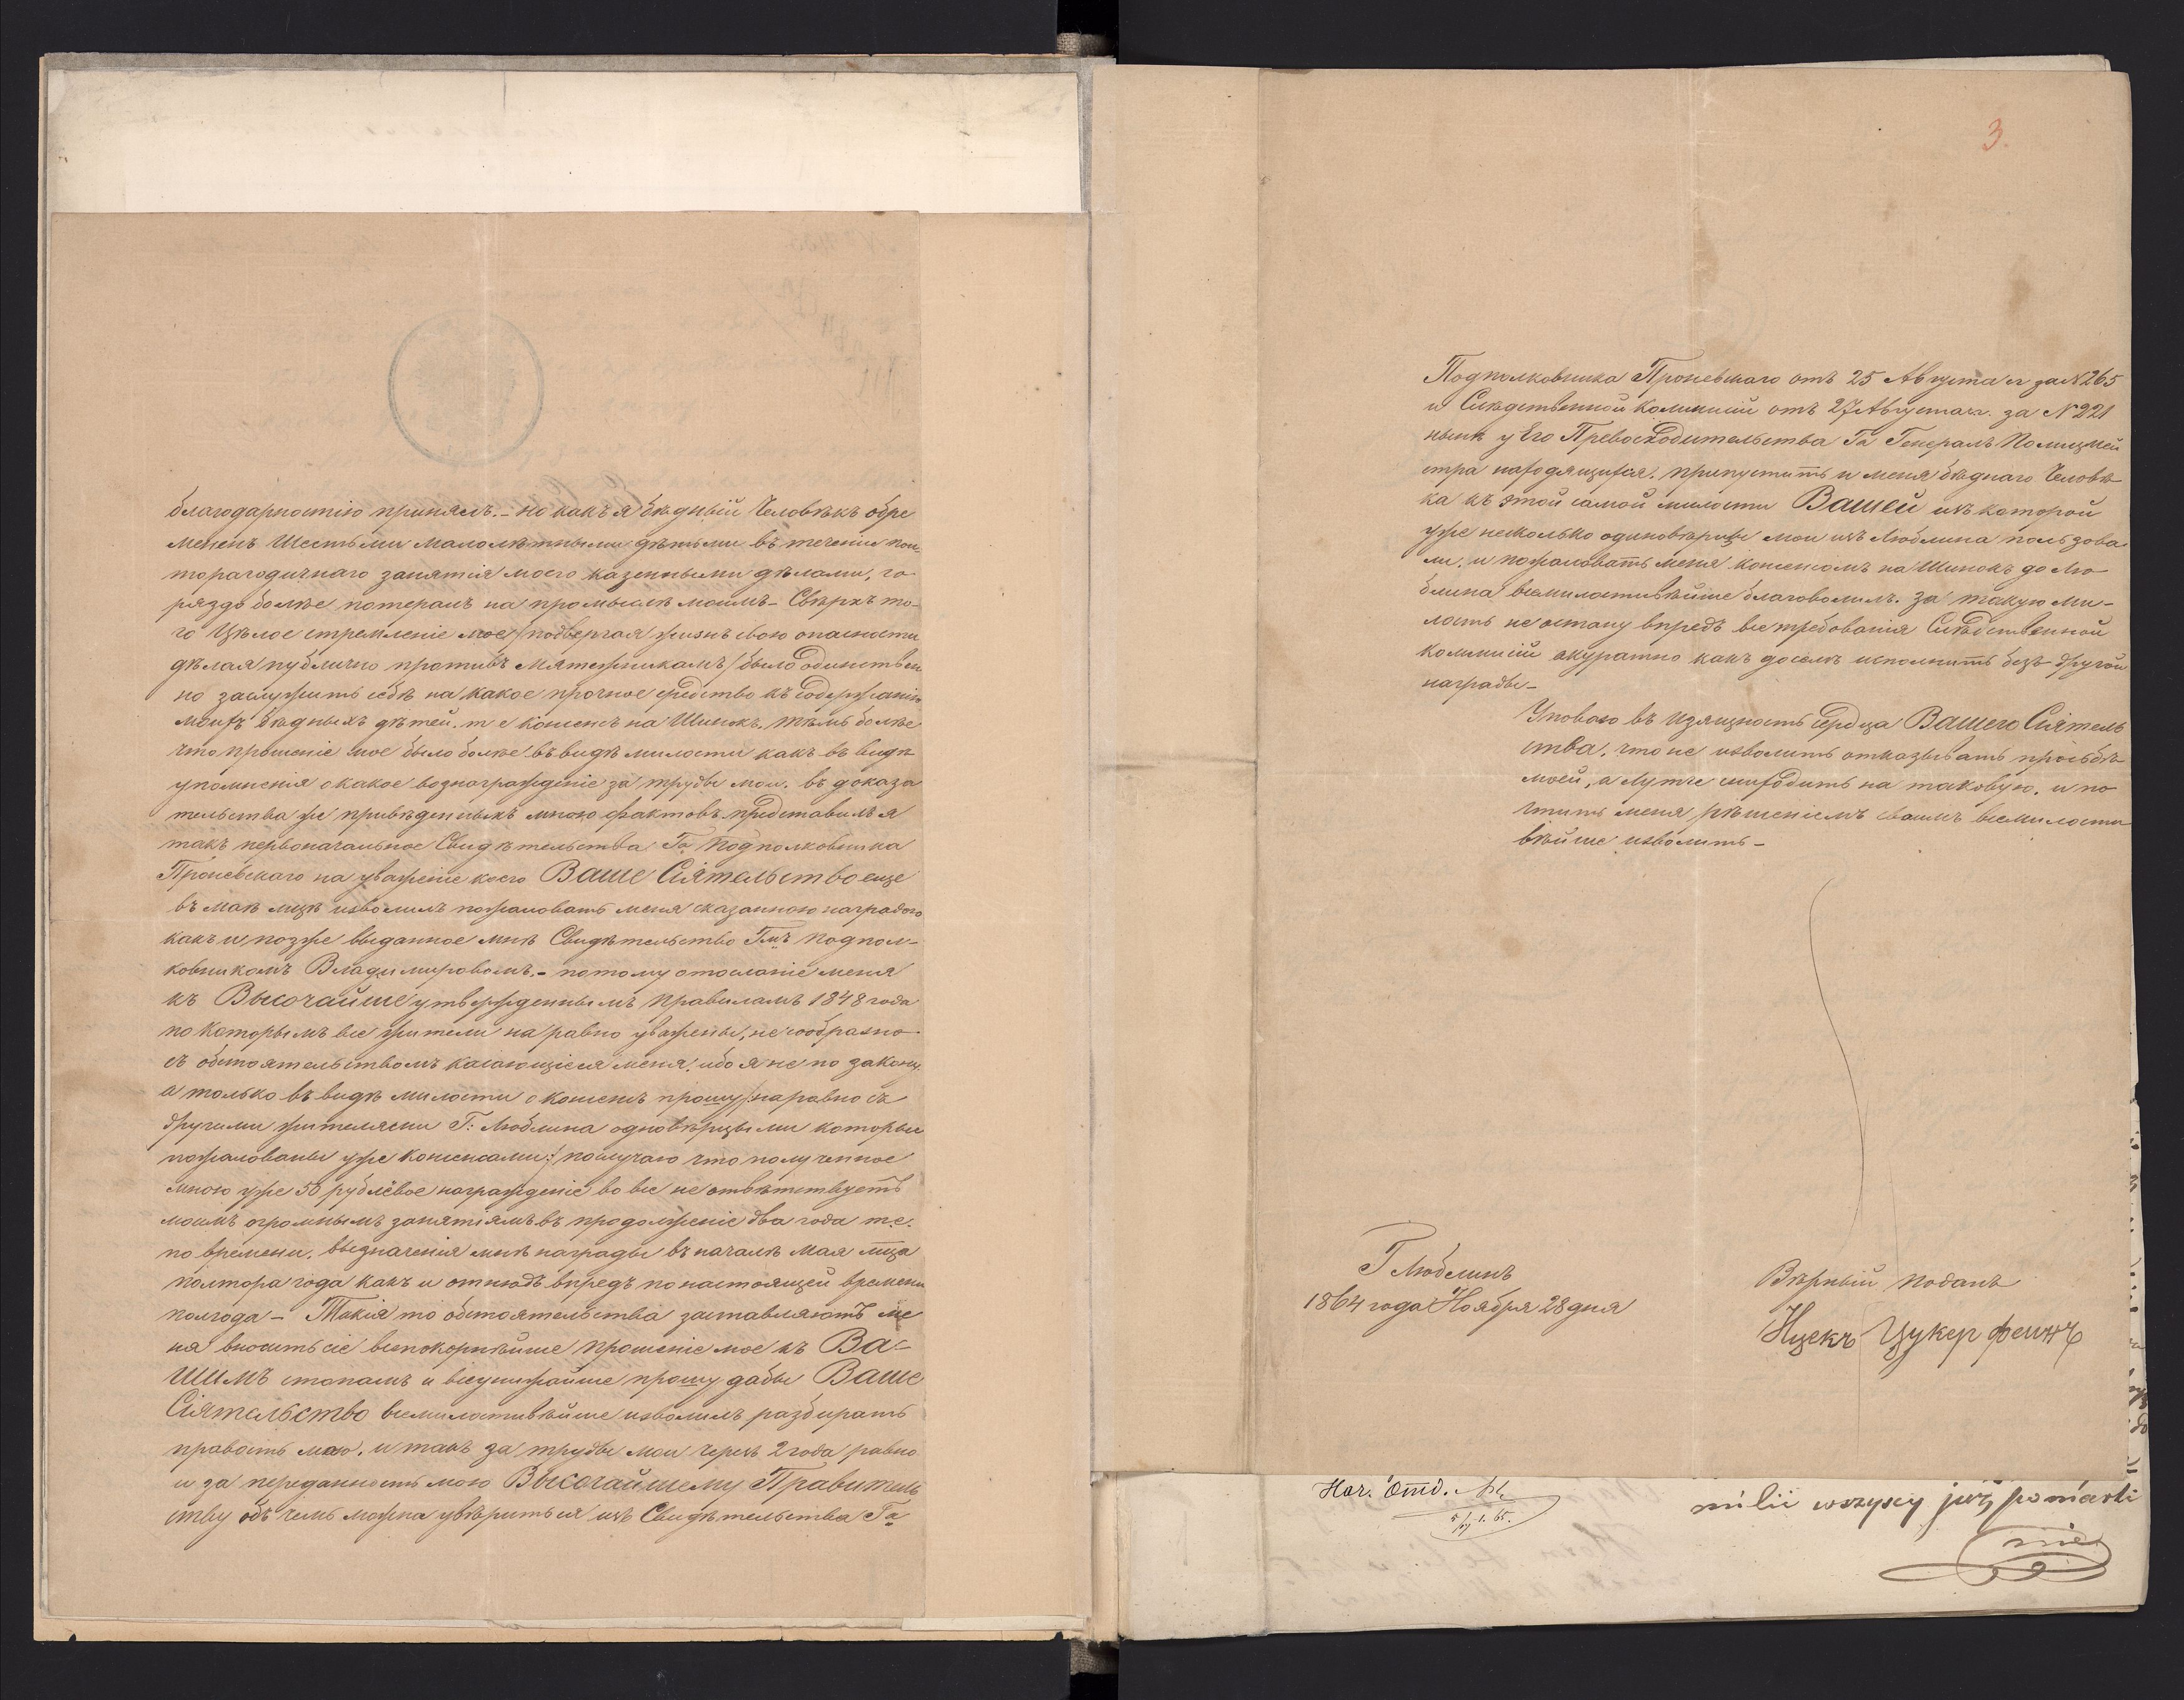 благодарностію принялъ. – но какъ я бѣдный Человѣкъ обре
мененъ Шестьми малолѣтными дѣтьми въ теченіи пол
торагодичнаго занятія моего казенными дѣлами, го-
раздо болѣе потералъ на промыслѣ моимъ – Сверхъ то-
го Цѣлое стремленіе мое /подвергая жизнь свою опасности
дѣлая публично противъ мятежникамъ/ было одинствен
но заслужить себѣ на какое прочное средство къ Содержанію
моихъ бѣдныхъ дѣтей. т е консенсъ на Шинокъ, тѣмъ болѣе
что прошеніе мое было болѣе въ видѣ милости какъ въ видѣ
упомненія о какое вознагражденіе за труды мои. въ доказа
тельства же приведенныхъ мною фактовъ представилъ я
такъ первоначальное Свидѣтельства Га Подполковника
Проневскаго на уваженіе коего Ваше Сіятельство еще
въ маѣ мцѣ изволилъ пожаловать меня сказанною наградою
какъ и позже выданное мнѣ Свидѣтельство Гмъ Подпол-
ковникомъ Владимировомъ, – потому отосланіе меня
къ Высочайше утвержденнымъ правиламъ 1848 года
по которымъ все жители на равно уважены, не сообразно
съ обстоятельствомъ касающіеся меня, ибо я не по закону,
а только въ видѣ милости о консенсъ прошу /: наравно съ
другими жителями Г: Люблина одновѣрцыми которые
пожалованы уже консенсами :/ поелучаю что полученное
мною уже 50 рублёвое награжденіе во все не отвѣтствуетъ
моимъ огромнымъ занятіямъ въ продолженіе два года т.е.
по времени, выдначенія мнѣ награды въ началѣ Мая мца
полтора года какъ и отнюдъ впредъ по настоящей времени
полгода – Такія то обстоятельства заставляютъ ме
ня вносить сіе всепокорнѣйше прошеніе мое къ Ва-
шимъ стопамъ и всеунижайше прошу дабы Ваше
Сіятельство всемилостивѣйше изволилъ разбирать
правость мою, и такъ за труды мои черезъ 2 года равно
и за переданность мою Высочайшему Правитель
ству объ чемъ можна увѣриться изъ Свидѣтельства Га
3.
Подполковника Проневскаго отъ 25 Августа с г за N 265
и Слѣдственной Коммисіи отъ 27 Августа с.г. за N 221
нынѣ у Его Превосходительства Га Генералъ Полицмей
стра находящихся, припустить и меня бѣднаго Человѣ
ка къ этой самой милости Вашей изъ которой
уже несколько одиновѣрцы мои изъ Люблина пользова
ли, и пожаловать меня консенсомъ на Шинокъ до Лю
блина всемилостивѣйше благоволилъ. за такую ми-
лость не остану впредъ все требованія Слѣдственной
Коммисіи акуратно какъ доселѣ исполнить безъ другой
награды –
Уповаю въ изящность сердца Вашего Сіятель
ства, что не изволить отказывать прозьбѣ
моей, а Лутче снисходить на таковую, и по
чтить меня рѣшеніемъ своимъ всемилости
вѣйше изволить –
Г Люблинъ
1864 года Ноября 28 дня
Вѣрный подань
Ицекъ Цукерфеинъ
Нач. Отд.
5/1. 65.
milii wszyscy już poniesli
nie